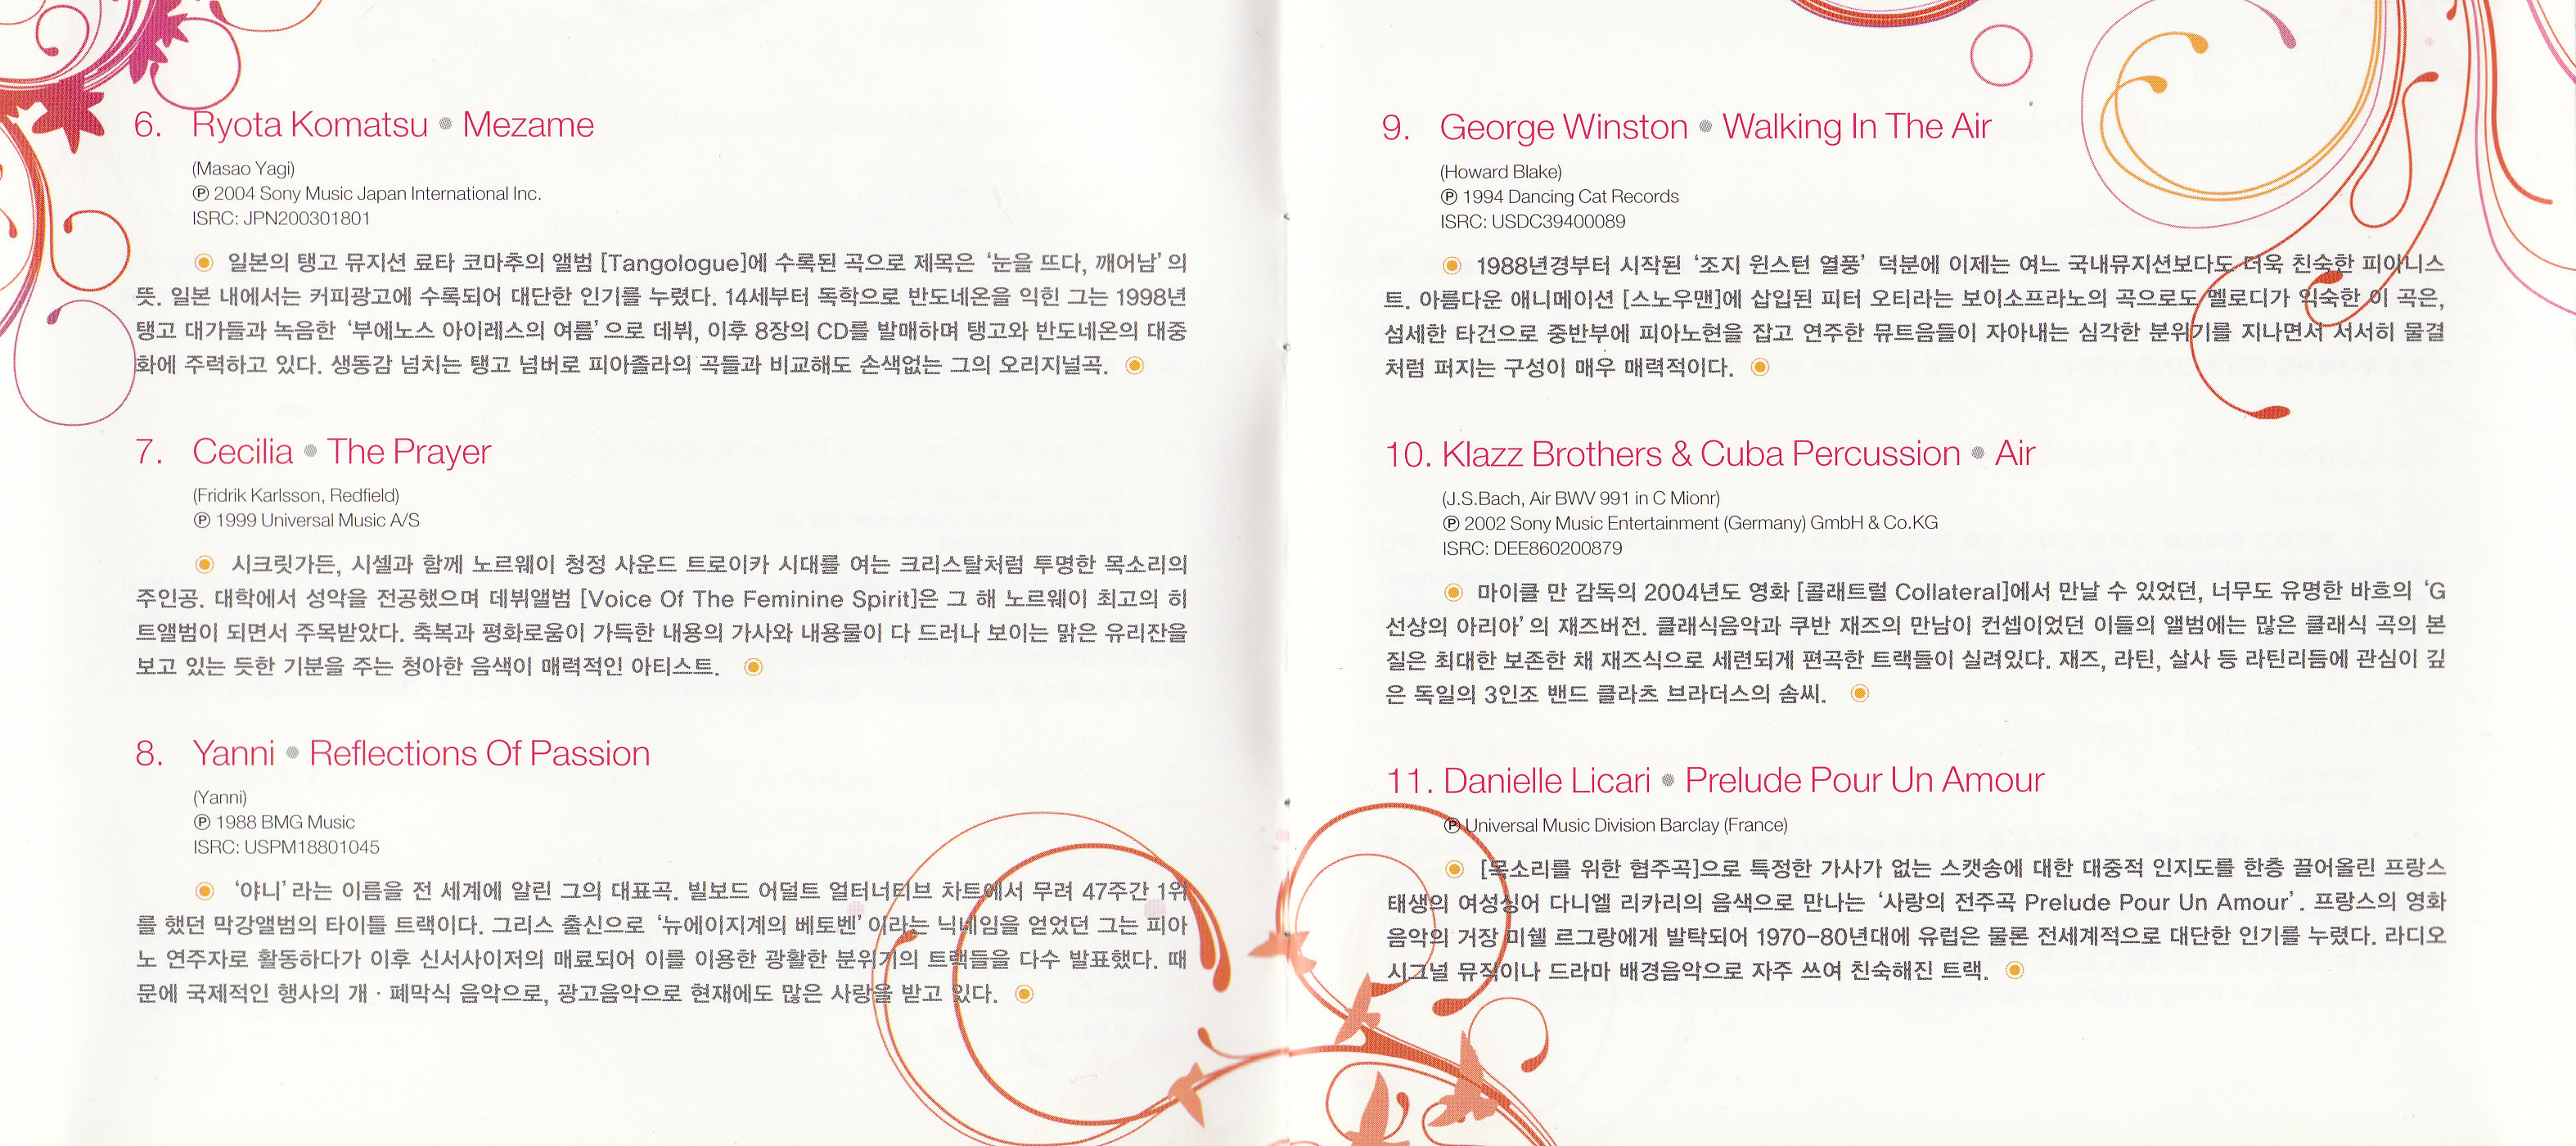 6. Ryota Komatsu • Mezame
(Masao Yagi)
℗ 2004 Sony Music Japan International Inc.
ISRC: JPN200301801
일본의 탱고 뮤지션 료타 코마추의 앨범 [Tangologue]에 수록된 곡으로 제목은 ‘눈을 뜨다, 깨어남’의
뜻. 일본 내에서는 커피광고에 수록되어 대단한 인기를 누렸다. 14세부터 독학으로 반도네온을 익힌 그는 1998년
탱고 대가들과 녹음한 ‘부에노스 아이레스의 여름’으로 데뷔, 이후 8장의 CD를 발매하며 탱고와 반도네온의 대중
화에 주력하고 있다. 생동감 넘치는 탱고 넘버로 피아졸라의 곡들과 비교해도 손색없는 그의 오리지널곡.
7. Cecilia • The Prayer
(Fridrik Karlsson, Redfield)
℗ 1999 Universal Music A/S
시크릿가든, 시셀과 함께 노르웨이 청정 사운드 트로이카 시대를 여는 크리스탈처럼 투명한 목소리의
주인공. 대학에서 성악을 전공했으며 데뷔앨범 [Voice Of The Feminine Spirit]은 그 해 노르웨이 최고의 히
트앨범이 되면서 주목받았다. 축복과 평화로움이 가득한 내용의 가사와 내용물이 다 드러나 보이는 맑은 유리잔을
보고 있는 듯한 기분을 주는 청아한 음색이 매력적인 아티스트.
8. Yanni • Reflections Of Passion
(Yanni)
℗ 1988 BMG Music
ISRC: USPM18801045
‘야니’라는 이름을 전 세계에 알린 그의 대표곡. 빌보드 어덜트 얼터너티브 차트에서 무려 47주간 1위
를 했던 막강앨범의 타이틀 트랙이다. 그리스 출신으로 ‘뉴에이지계의 베토벤’이라는 닉네임을 얻었던 그는 피아
노 연주자로 활동하다가 이후 신서사이저의 매료되어 이를 이용한 광활한 분위기의 트랙들을 다수 발표했다. 때
문에 국제적인 행사의 개·폐막식 음악으로, 광고음악으로 현재에도 많은 사랑을 받고 있다.
9. George Winston • Walking In The Air
(Howard Blake)
℗ 1994 Dancing Cat Records
ISRC: USDC39400089
1988년경부터 시작된 ‘조지 윈스턴 열풍’ 덕분에 이제는 여느 국내뮤지션보다도 더욱 친숙한 피아니스
트. 아름다운 애니메이션 [스노우맨]에 삽입된 피터 오티라는 보이소프라노의 곡으로도 멜로디가 익숙한 이 곡은,
섬세한 타건으로 중반부에 피아노현을 잡고 연주한 뮤트음들이 자아내는 심각한 분위기를 지나면서 서서히 물결
처럼 퍼지는 구성이 매우 매력적이다.
10. Klazz Brothers & Cuba Percussion • Air
(J.S.Bach, Air BWV 991 in C Mionr)
℗ 2002 Sony Music Entertainment (Germany) GmbH & Co.KG
ISRC: DEE860200879
마이클 만 감독의 2004년도 영화 [콜래트럴 Collateral]에서 만날 수 있었던, 너무도 유명한 바흐의 ‘G
선상의 아리아’의 재즈버전. 클래식음악과 쿠반 재즈의 만남이 컨셉이었던 이들의 앨범에는 많은 클래식 곡의 본
질은 최대한 보존한 채 재즈식으로 세련되게 편곡한 트랙들이 실려있다. 재즈, 라틴, 살사 등 라틴리듬에 관심이 깊
은 독일의 3인조 밴드 클라츠 브라더스의 솜씨.
11. Danielle Licari • Prelude Pour Un Amour
℗ Universal Music Division Barclay (France)
[목소리를 위한 협주곡]으로 특정한 가사가 없는 스캣송에 대한 대중적 인지도를 한층 끌어올린 프랑스
태생의 여성싱어 다니엘 리카리의 음색으로 만나는 ‘사랑의 전주곡 Prelude Pour Un Amour’. 프랑스의 영화
음악의 거장 미쉘 르그랑에게 발탁되어 1970-80년대에 유럽은 물론 전세계적으로 대단한 인기를 누렸다. 라디오
시그널 뮤직이나 드라마 배경음악으로 자주 쓰여 친숙해진 트랙.